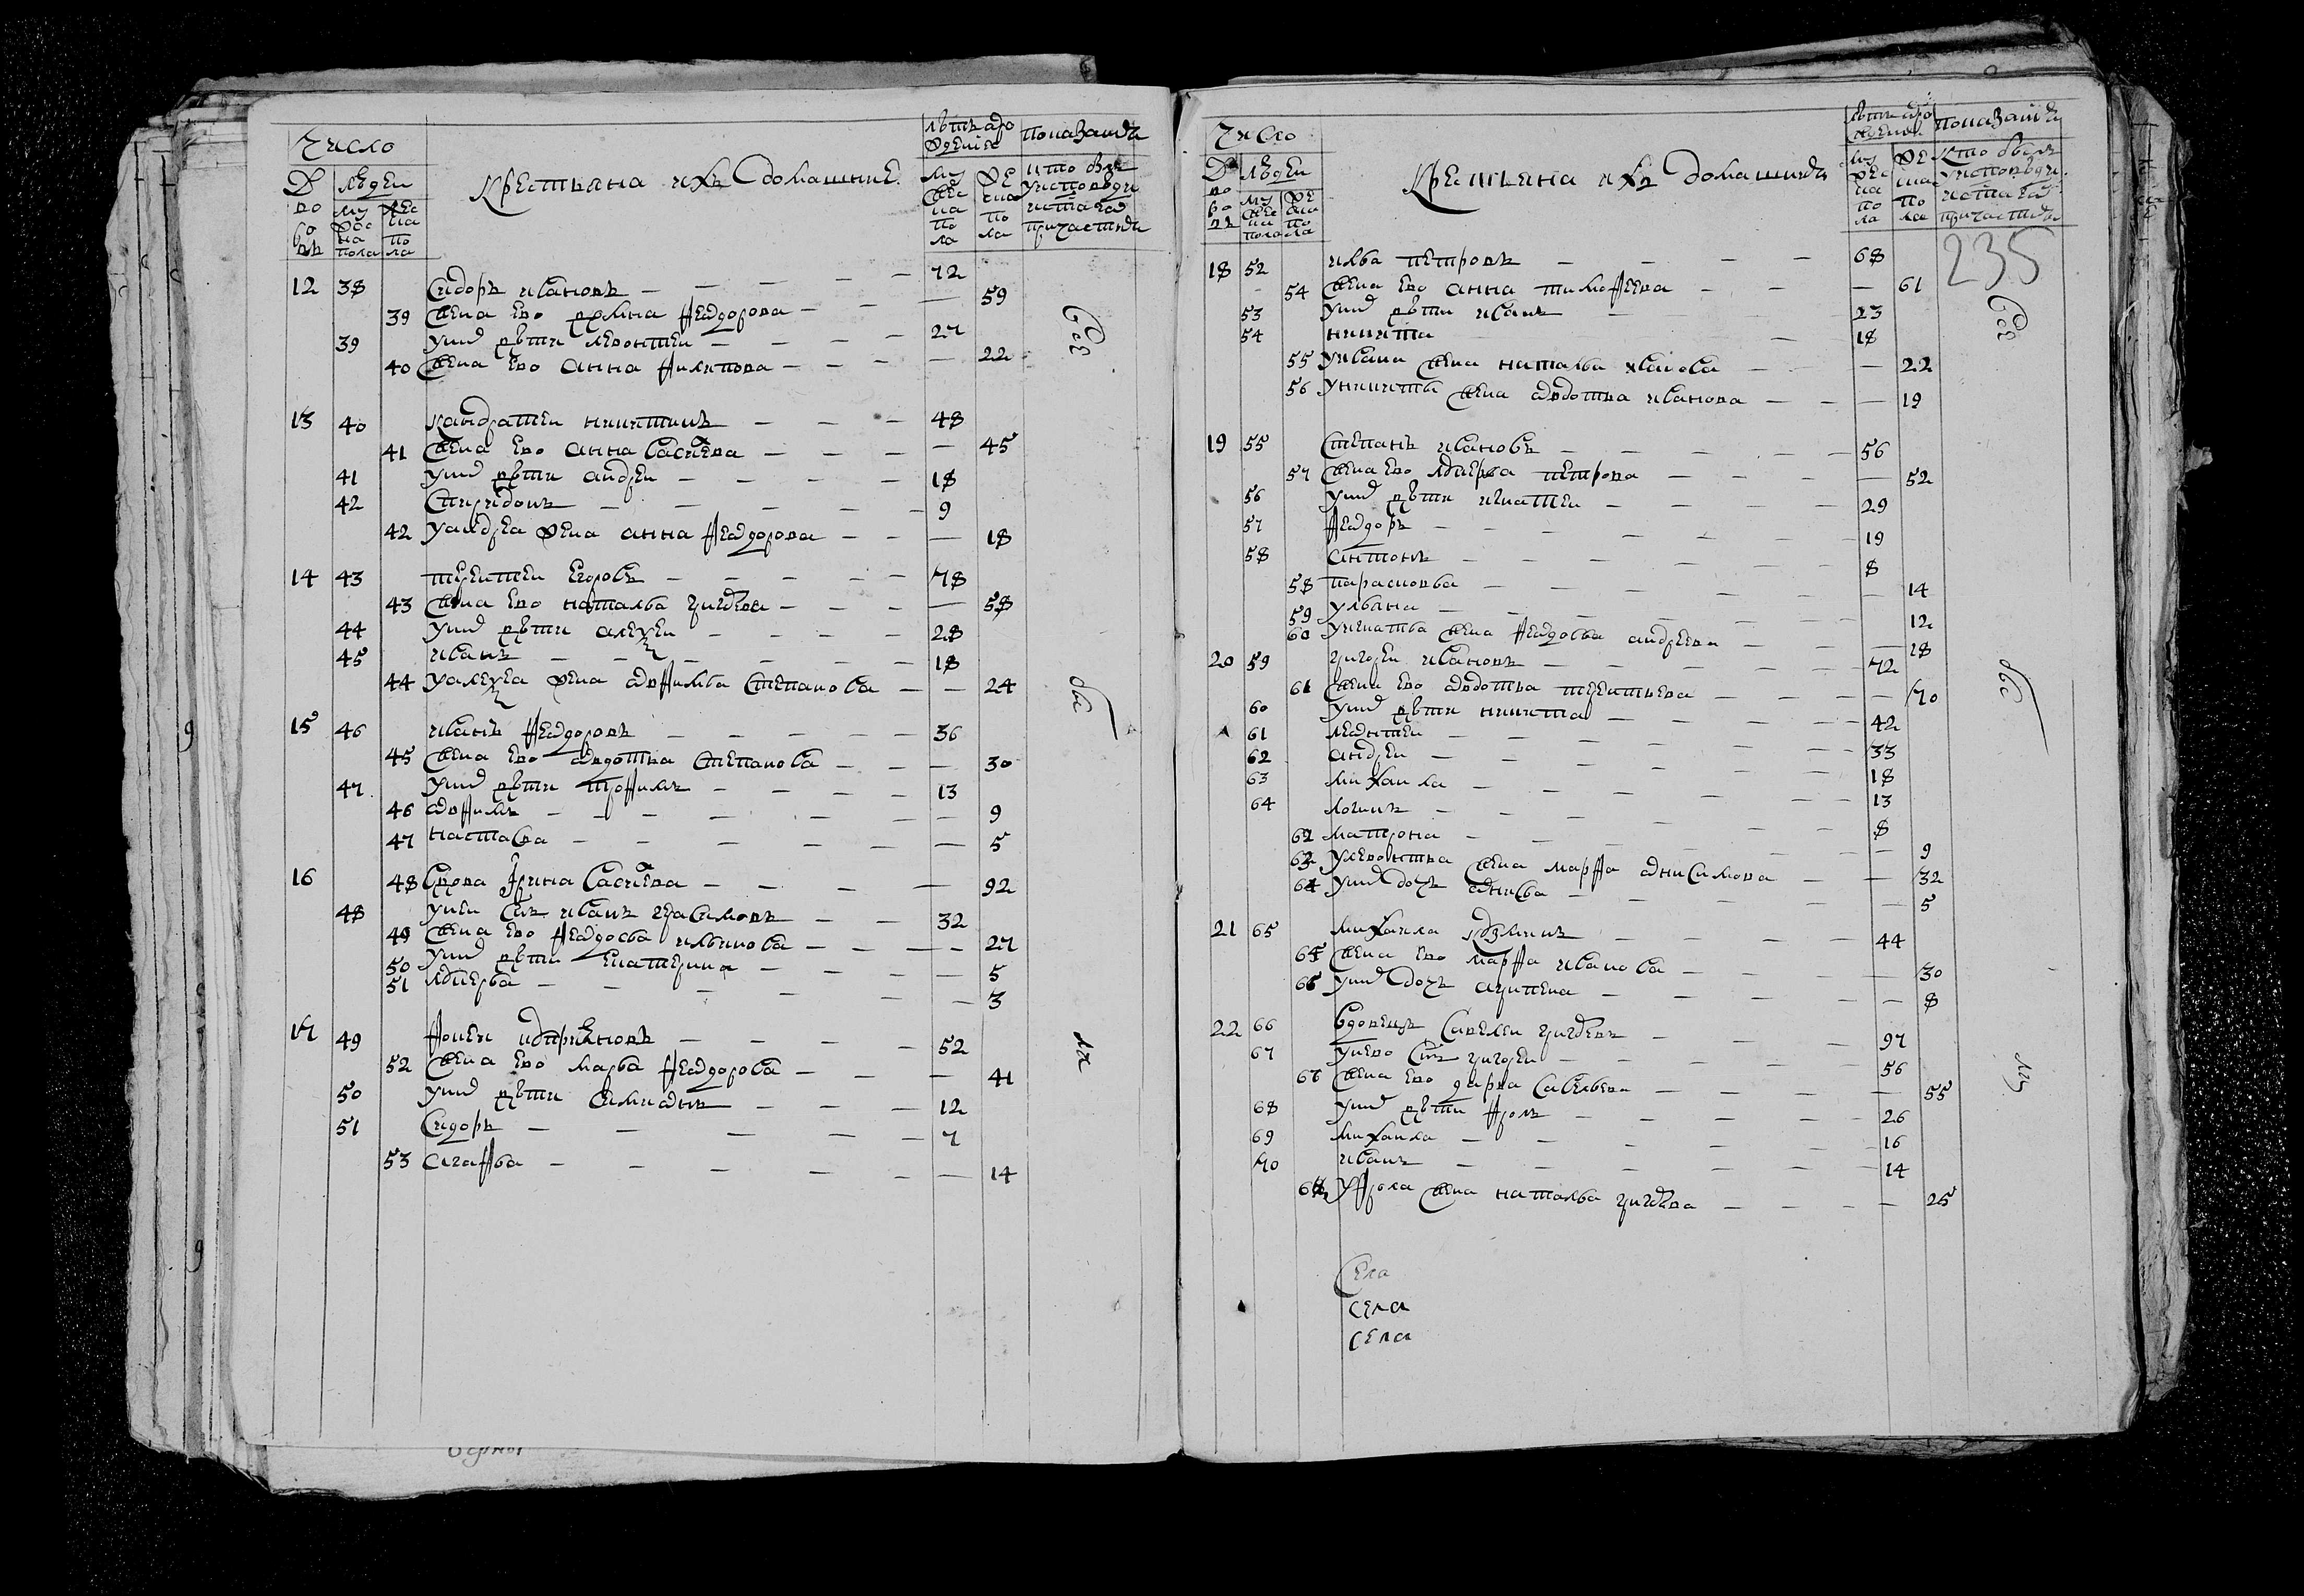 Число
Дворовъ
Людеи
Мужеска пола
Женска пола
Крестьяна ихъ домашние
Лѣта от рождения
Мужеска пола
Женска пола
Показание
кто былъ у исповѣди и святаго причастия
12 38 Сидоръ Ивановъ — — — — 72
39 жена ево Ѳедора Ѳедорова — — — 59
39 у них дѣти Левонтеи — — — — 27
40 жена ево Анна Филипова — — — — 22
13 40 Кандратеи Никитинъ — — — 48
41 жена ево Анна Васиева — — — — 45
41 у них дѣти Андреи — — — — 18
42 Спиридонъ — — — — — 9
42 у Андрея жена Анна Ѳедорова — — — 18
14 43 Терентеи Егоровъ — — — — — 78
43 жена ево Наталья Григорева — — — — 58
44 у них дѣти Алексеи — — — — 28
45 Иванъ — — — — — — 18
44 у Алексея жена Афимья Степанова — — 24
15 46 Иванъ Ѳедоровъ — — — — — 36
45 жена ево Авдотья Степанова — — — 30
47 у них дѣти Трофимъ — — — — 13
46 Афимья — — — — — — 9
47 Настасья — — — — — — 5
16 48 вдова Ирина Васиева — — — — 92
48 у неи сынъ Иванъ Герасимовъ — — 32
49 жена ево Ѳедосья Ильинова — — — — 27
50 у них дѣти Екатерина — — — — 5
51 Лукерья — — — — — — 3
17 49 Фокеи Куприяновъ — — — — 52
52 жена ево Марья Ѳедорова — — — 41
50 у них дѣти Симионъ — — — 12
51 Сидоръ — — — — — 7
53 Агафья — — — — — — 14
всѣ
бы
ли
Число
Дворовъ
Людеи
Мужеска пола
Женска пола
Крестьяна ихъ домашния
Лѣта от рождения
Мужеска пола
Женска пола
Показание
кто былъ у исповѣди и святаго причастия
235
18 52 Илья Петровъ — — — — 68
54 жена ево Анна Тимофеева — — — 61
53 у них дѣти Иванъ — — 23
54 Никита — — 18
55 у Ивана жена Наталья Иванова — — 22
56 у Никиты жена Авдотья Иванова — — — 19
19 55 Степанъ Ивановъ — — — — — 56
57 жена ево Лукерья Петрова — — — — 52
56 у них дѣти Игнатеи — — — — 29
57 Ѳедоръ — — — — — — 19
58 Антонъ — — — — — — 8
58 Парасковья — — — — — 14
59 Ульяна — — — — — — 12
60 у Игнатья жена Ѳедосья Андреева — — — 18
20 59 Григореи Ивановъ — — — — — 72
61 жена ево Авдотья Терентьева — — — — 70
60 у них дѣти Никита — — — — — 42
61 Леонтеи — — — — — — 33
62 Андреи — — — — — — 18
63 Михаила — — — — — — 13
64 Логинъ — — — — — — 8
62 Матрона — — — — — — 9
63 у Левонтья жена Марфа Анисимова — — 32
64 у них дочь Анисья — — — — — 5
21 65 Михаила Кузминъ — — — — 44
65 жена ево Марфа Иванова — — — — 30
66 у них дочь Агрипена — — — — — 8
22 66 вдовецъ Савелеи Григоревъ — — — — 97
67 у нево сынъ Григореи — — — — — 56
67 жена ево Дарья Савельева — — — — 55
68 у них дѣти Фролъ — — — — — 26
69 Михаила — — — — — 16
70 Иванъ — — — — — — 14
68 у Фрола жена Наталья Григорева — — — — 25
всѣ
бы
ли
Села
села
села